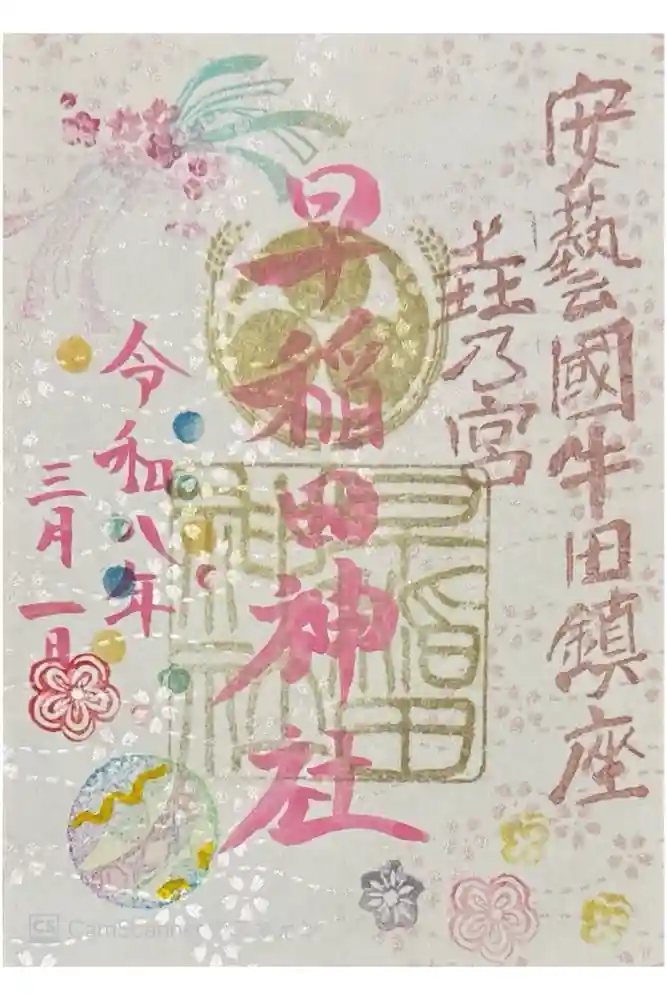 安藝國牛田鎮座
乃宮
早稲田神社
早稲田神社
令和八年
三月一日
CS CamScannerでスキャン